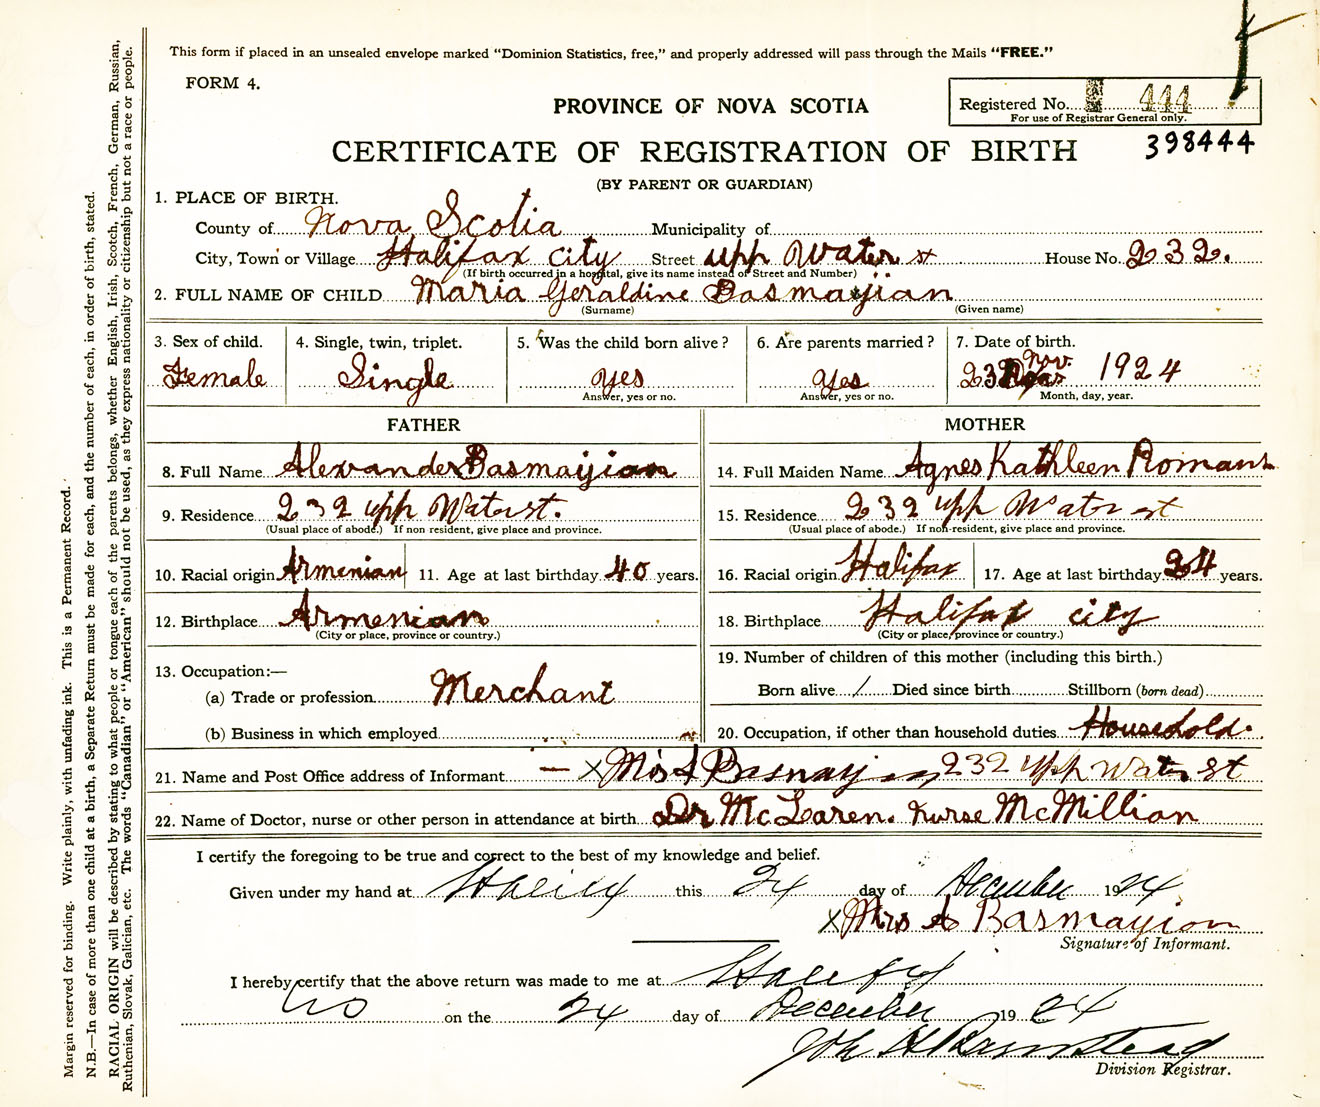 This form if placed in an unsealed envelope marked "Dominion Statistics, free," and properly addressed will pass through the Mails "FREE."
FORM 4.
Registered No. 444
For use of Registrar General only.
PROVINCE OF NOVA SCOTIA
398444
CERTIFICATE OF REGISTRATION OF BIRTH
(BY PARENT OR GUARDIAN)
1. PLACE OF BIRTH.
County of Nova Scotia Municipality of
City, Town or Village Halifax city Street upp Water st House No. 232.
(If birth occurred in a hospital, give its name instead of Street and Number)
2. FULL NAME OF CHILD Maria Geraldine Basmayjian
(Surname) (Given name)
3. Sex of child. 4. Single, twin, triplet. 5. Was the child born alive? 6. Are parents married? 7. Date of birth.
Female Single yes yes 23 Nov. 1924
Answer, yes or no. Answer, yes or no. Month, day, year.
FATHER MOTHER
8. Full Name Alexander Basmayjian 14. Full Maiden Name Agnes Kathleen Romans
9. Residence 232 upp Water st. 15. Residence 232 upp Water st
(Usual place of abode.) If non resident, give place and province. (Usual place of abode.) If non-resident, give place and province.
10. Racial origin Armenian 11. Age at last birthday 40 years. 16. Racial origin Halifax 17. Age at last birthday 24 years.
12. Birthplace Armenian 18. Birthplace Halifax city
(City or place, province or country.) (City or place, province or country.)
13. Occupation:— 19. Number of children of this mother (including this birth.)
(a) Trade or profession Merchant Born alive 1 Died since birth Stillborn (born dead)
(b) Business in which employed 20. Occupation, if other than household duties Household.
21. Name and Post Office address of Informant — x Mrs A Basmayjian 232 upp Water St
22. Name of Doctor, nurse or other person in attendance at birth Dr McLaren. Nurse McMillian
I certify the foregoing to be true and correct to the best of my knowledge and belief.
Given under my hand at Halifax this 24 day of December 1924
x Mrs A Basmayion
Signature of Informant.
I hereby certify that the above return was made to me at Halifax
NS on the 24 day of December 1924
Division Registrar.
Margin reserved for binding. Write plainly, with unfading ink. This is a Permanent Record.
N.B.—In case of more than one child at a birth, a Separate Return must be made for each, and the number of each, in order of birth, stated.
RACIAL ORIGIN will be described by stating to what people or tongue each of the parents belongs, whether English, Irish, Scotch, French, German, Russian,
Ruthenian, Slovak, Galician, etc. The words "Canadian" or "American" should not be used, as they express nationality or citizenship but not a race or people.